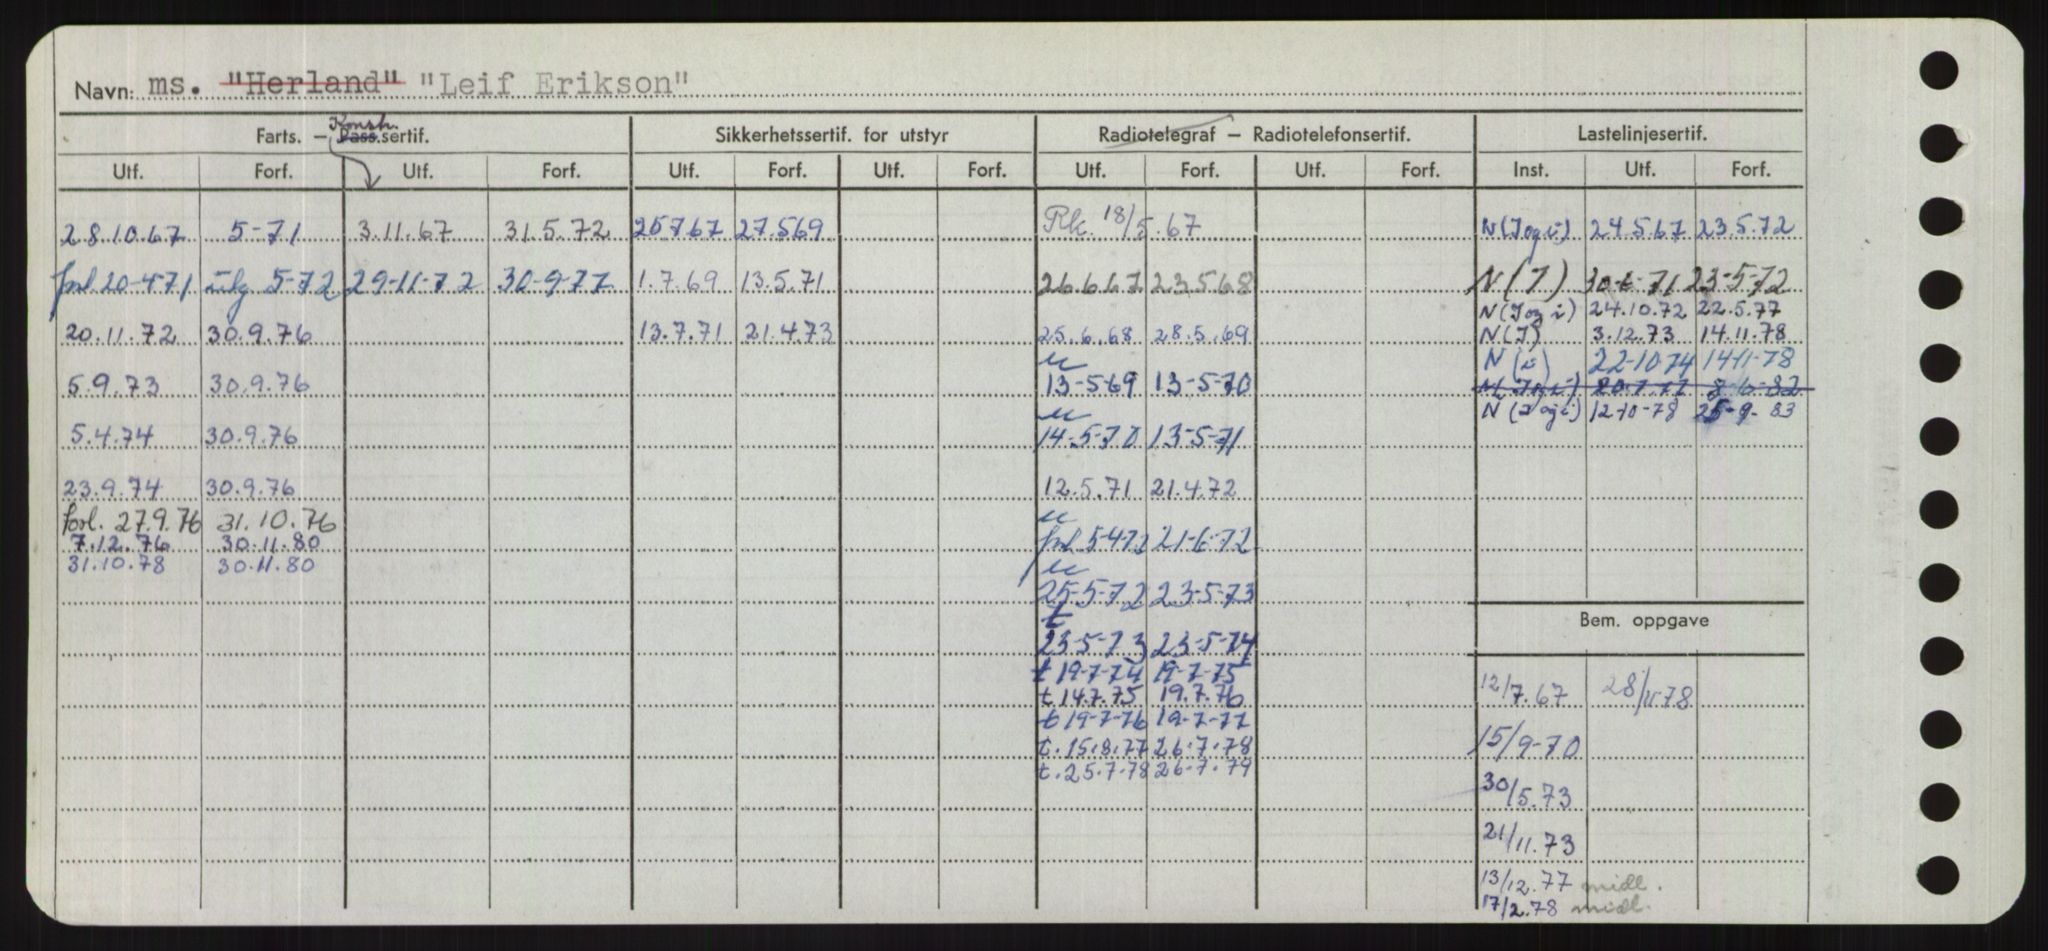 Navn: ms. "Herland" "Leif Erikson"
Farts. — Konstr. Pass.sertif. Sikkerhetssertif. for utstyr Radiotelegraf — Radiotelefonsertif. Lastelinjesertif.
Utf. Forf. Utf. Forf. Utf. Forf. Utf. Forf. Utf. Forf. Utf. Forf. Inst. Utf. Forf.
28.10.67 5-71 3.11.67 31.5.72 25767 27.569 Rk. 18/5.67 N(I og i) 24.5.67 23.5.72
forl 20-4-71 5-72 29-11-72 30-9-77 1.7.69 13.5.71 26.6.67 23.5.68 N(I) 30-6-71 23-5-72
N(I og i) 24.10.72 22.5.77
20.11.72 30.9.76 13.7.71 21.4.73 25.6.68 28.5.69 N(I) 3.12.73 14.11.78
u N(i) 22-10-74 14-11-78
5.9.73 30.9.76 13-5-69 13-5-70 N(I og i) 20.7.77 8-6-82
u N(I og i) 12-10-78 25-9-83
5.4.74 30.9.76 14-5-70 13-5-71
23.9.74 30.9.76 12.5.71 21.4.72
forl. 27.9.76 31.10.76 u
7.12.76 30.11.80 forl 5-4-72 21-6-72
31.10.78 30.11.80 u
25-5-72 23-5-73
t Bem. oppgave
23-5-73 23-5-74
t 19-7-74 19-7-75
t 14.7.75 19.7.76 12/7.67 28/11.78
t 19-7-76 19-7-77
t. 15.8.77 26.7.78 15/9-70
t. 25.7.78 26.7.79
30/5.73
21/11.73
13/12.77 midl.
17/2.78 midl.